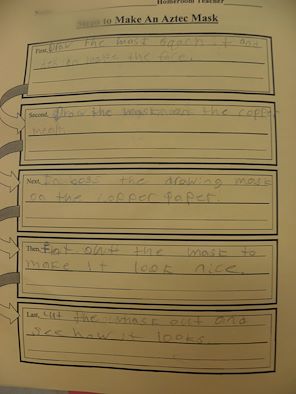 Homeroom Teacher
Steps to Make An Aztec Mask
First, Draw the mask again. t and
the face.
Second, Draw the mask on the copper
Next, Emboss the drawing mask
on the copper paper.
Then, out the mask to
make it look nice.
Last, cut the mask out and
see how it looks.